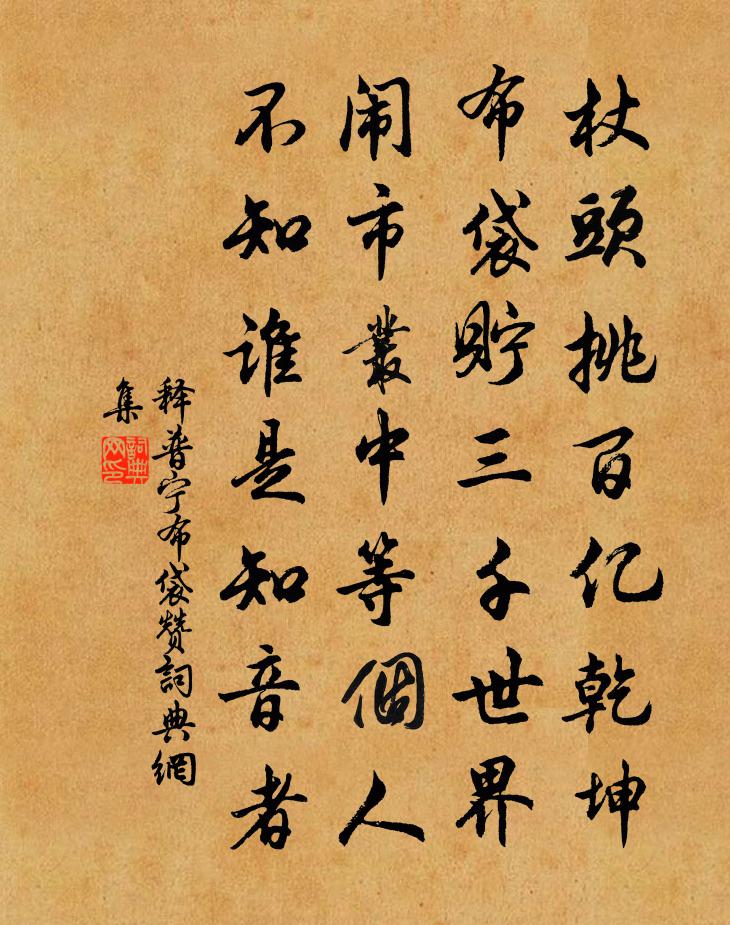 杖頭挑百亿乾坤
布袋貯三千世界
闹市叢中等個人
不知谁是知音者
释普宁布袋赞詞典網
集
詞典
网印